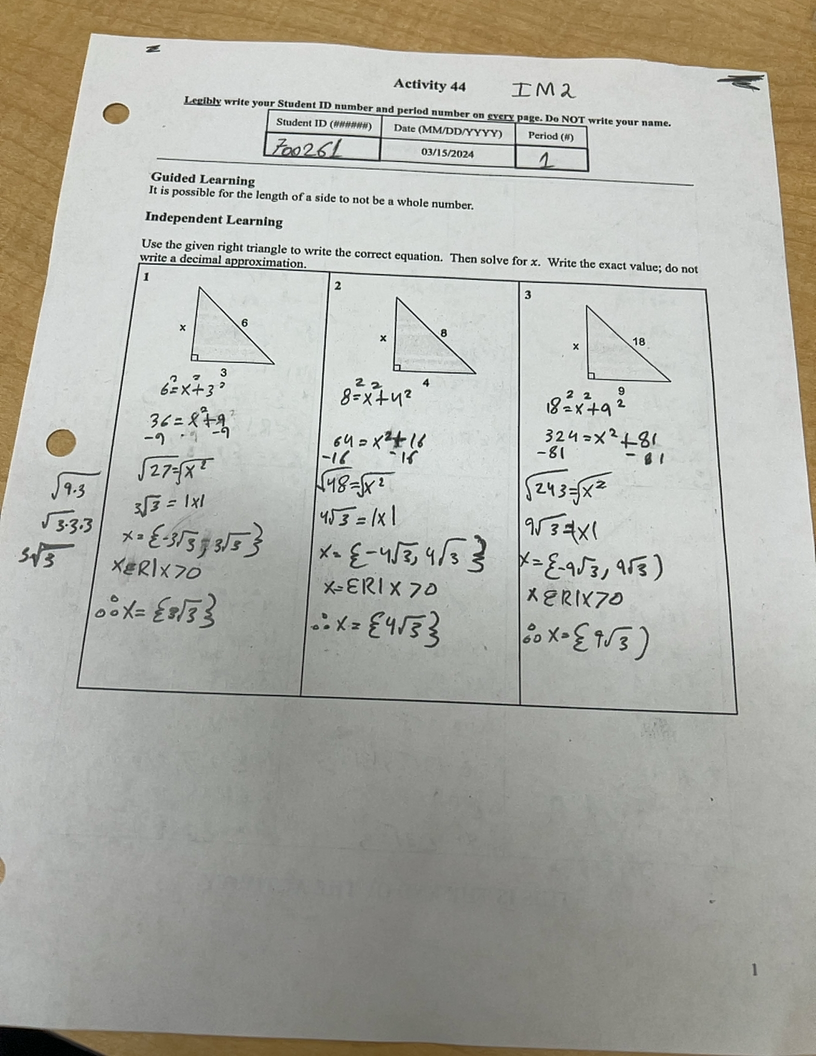 Activity 44 IM2
Legibly write your Student ID number and period number on every page. Do NOT write your name.
Student ID (######) Date (MM/DD/YYYY) Period (#)
700261 03/15/2024 1
Guided Learning
It is possible for the length of a side to not be a whole number.
Independent Learning
Use the given right triangle to write the correct equation. Then solve for x. Write the exact value; do not
write a decimal approximation.
1
x 6
3
6²=x²+3²
36=x²+9
-9 -9
√27=√x²
3√3 = |x|
x={-3√3, 3√3}
x∈R|x>0
∴x={3√3}
√9·3
√3·3·3
3√3
2
x 8
4
8²=x²+4²
64=x²+16
-16 -16
√48=√x²
4√3=|x|
x={-4√3, 4√3}
x=∈R|x>0
∴x={4√3}
3
x 18
9
18²=x²+9²
324=x²+81
-81 -81
√243=√x²
9√3=|x|
x={-9√3, 9√3)
x∈R|x>0
∴x={9√3)
1